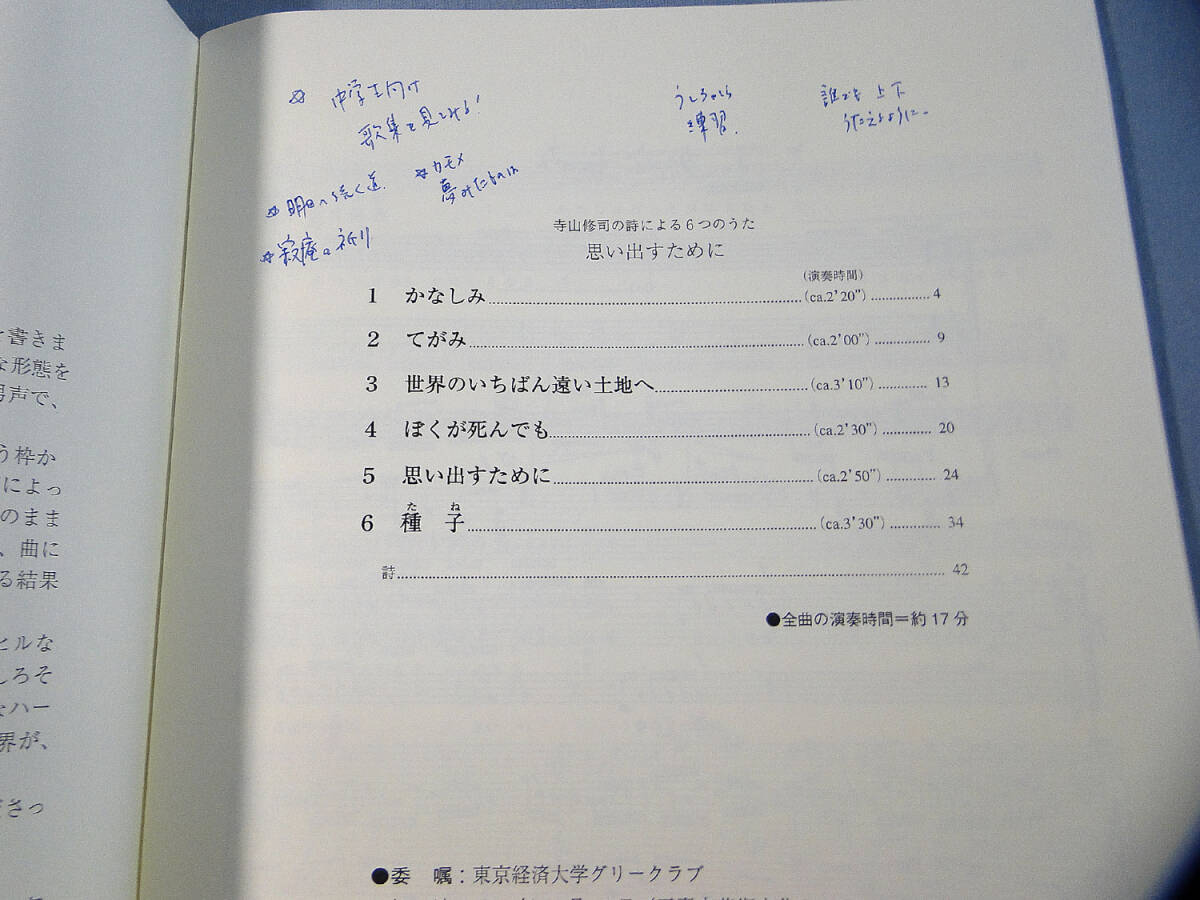 ☆ 中学生向け
歌集を見てみる!
☆ 明日へ続く道
☆ カモメ
夢みたものは
☆ 寂庵の祈り
練習.
誰でも 上下
うたえるように.
寺山修司の詩による6つのうた
思い出すために
(演奏時間)
1 かなしみ (ca.2'20") 4
2 てがみ (ca.2'00") 9
3 世界のいちばん遠い土地へ (ca.3'10") 13
4 ぼくが死んでも (ca.2'30") 20
5 思い出すために (ca.2'50") 24
6 種子 (ca.3'30") 34
たね
詩 42
●全曲の演奏時間=約17分
●委 嘱:東京経済大学グリークラブ
書きま
な形態を
男声で、
う枠か
によっ
のまま
、曲に
る結果
ヒルな
しろそ
なハー
界が、
ださっ